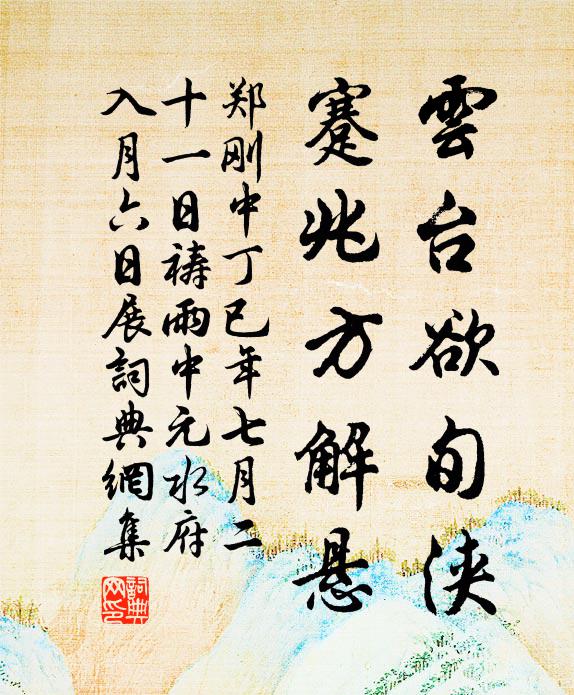 雲台欲旬浹
蹇兆方解懸
郑刚中丁巳年七月二
十一日祷雨中元水府
入月六日展詞典網集
詞典网印